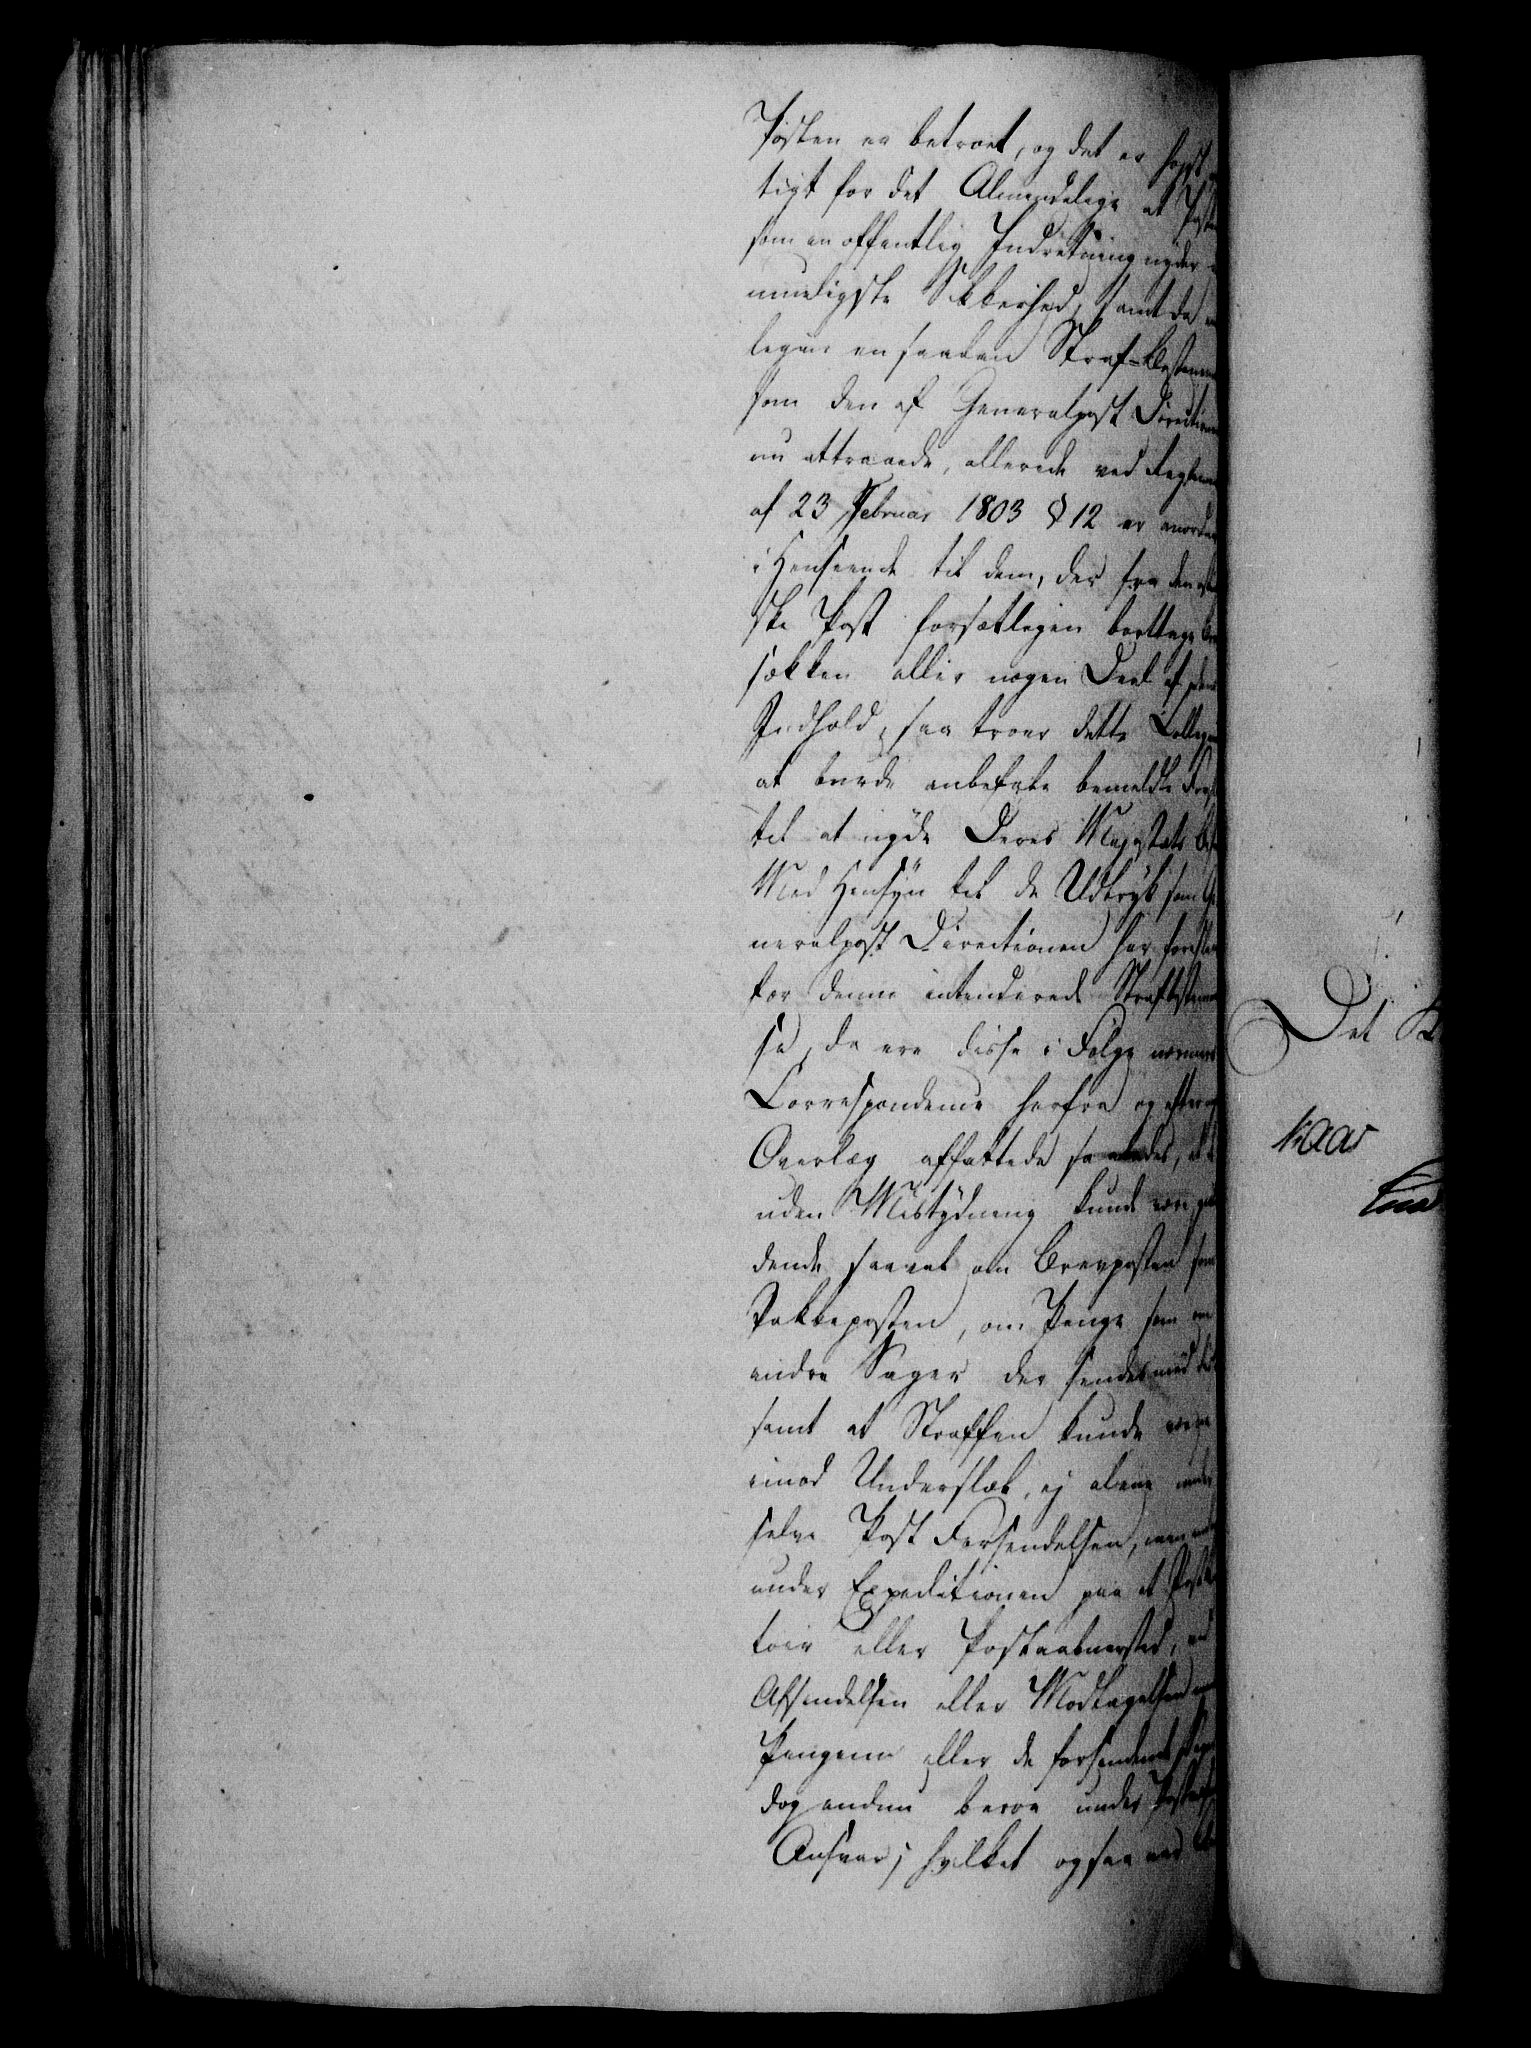 Posten er betroet, og det er høist
tigt for det Almindelige at Posten
som en offentlig Indretning nyder
mueligste Sikkerhed, samt da
legen en saadan Straf-Bestemm
som den af Generalpost Directionen
nu attraaede, allerede ved Reglem
af 23 Februar 1803 § 12 er anordn
i Henseende til dem, der fra den
ske Post forsætligen borttage
sækken eller nogen Deel af
Indhold, saa troer dette Colleg
at burde anbefale bemeldte
til at nyde Deres Majestæts
Med Hensyn til de Udtryk som Ge
neralpost Directionen har foreslaa
for denne intenderede Strafbestemmel
se, da ere disse i Følge nærmere
Correspondence herfra og efter
Overlæg affattede saaledes, at
uden Mistydning kunde være gjæl
dende saavel om Brevposten som
Pakkeposten, om Penge som om
andre Sager der sendes med
samt at Straffen kunde være
imod Underslæb, ej alene under
selve Post Forsendelsen, men
under Expeditionen paa et Postkon
toir eller Postaabnersted, ved
Afsendelsen eller Modtagelsen
Pengene eller de forsendende Sager
dog endnu beroe under Post
Ansvar; hvilket ogsaa ved
Det K